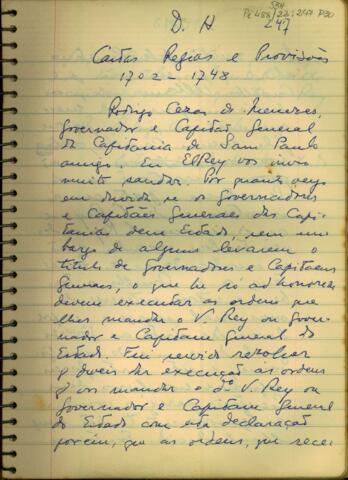 D. H
247
Cartas Regias e Provisões
1702 - 1748
Rodrigo Cezar de Menezes,
Governador e Capitão General
da Capitania de Sam Paulo
amigo. Eu ElRey vos invio
muito saudar. Por quanto veyo
em duvida se os Governadores
e Capitães Generaes das Capi-
tanias desse Estado, sem em-
bargo de alguns levarem o
titulo de Governadores e Capitaens
Generaes, o que he só ad honorem
devem executar as ordens que
lhes mandar o V. Rey ou Gover-
nador e Capitam General do
Estado. Fui servido rezolver
q deveis dar execução as ordens
q vos mandar o dº V. Rey ou
Governador e Capitam General
do Estado com esta declaração
porém, que as ordens, que rece-